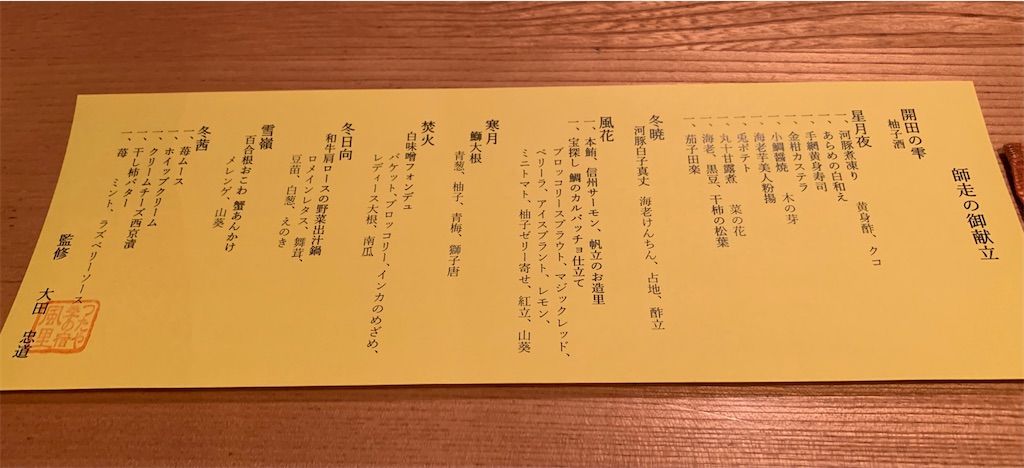 師走の御献立
開田の雫
柚子酒
星月夜
一、河豚煮凍り 黄身酢、クコ
一、あらめの白和え
一、手綱黄身寿司
一、金柑カステラ 木の芽
一、小鯛醤焼
一、海老芋美人粉揚
一、兎ポテト
一、丸十甘露煮 菜の花
一、海老、黒豆、干柿の松葉
一、茄子田楽
冬暁
河豚白子真丈 海老けんちん、占地、酢立
風花
一、本鮪、信州サーモン、帆立のお造里
一、宝探し 鯛のカルパッチョ仕立て
ブロッコリースプラウト、マジックレッド、
ペリーラ、アイスプラント、レモン、
ミニトマト、柚子ゼリー寄せ、紅立、山葵
寒月
鰤大根
青葱、柚子、青梅、獅子唐
焚火
白味噌フォンデュ
バケット、ブロッコリー、インカのめざめ、
レディース大根、南瓜
冬日向
和牛肩ロースの野菜出汁鍋
ロメインレタス、舞茸、
豆苗、白葱、えのき
雪嶺
百合根おこわ 蟹あんかけ
メレンゲ、山葵
冬茜
一、苺ムース
一、ホイップクリーム
一、クリームチーズ西京漬
一、干し柿バター
一、苺 ミント、ラズベリーソース
監修 大田 忠道
つたや
季の宿
風里